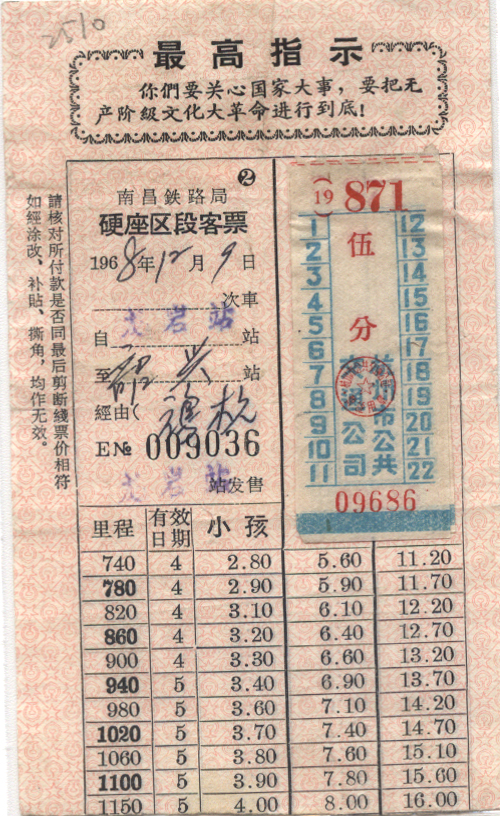 2510
最高指示
你們要关心国家大事，要把无
产阶級文化大革命进行到底！
2
南昌鉄路局
硬座区段客票
1968年12月9日
次車
自 岩站 站
至 兴 站
經由(
E№ 009036
岩站 站发售
請核对所付款是否同最后剪断綫票价相符
如經涂改、补貼、撕角，均作无效。
(19) 871
伍
分
1 12
2 13
3 14
4 15
5 16
6 17
7 18
8 19
9 20
10 21
11 22
市公共
公司
09686
里程 有效日期 小孩
740 4 2.80 5.60 11.20
780 4 2.90 5.90 11.70
820 4 3.10 6.10 12.20
860 4 3.20 6.40 12.70
900 4 3.30 6.60 13.20
940 5 3.40 6.90 13.70
980 5 3.60 7.10 14.20
1020 5 3.70 7.40 14.70
1060 5 3.80 7.60 15.10
1100 5 3.90 7.80 15.60
1150 5 4.00 8.00 16.00